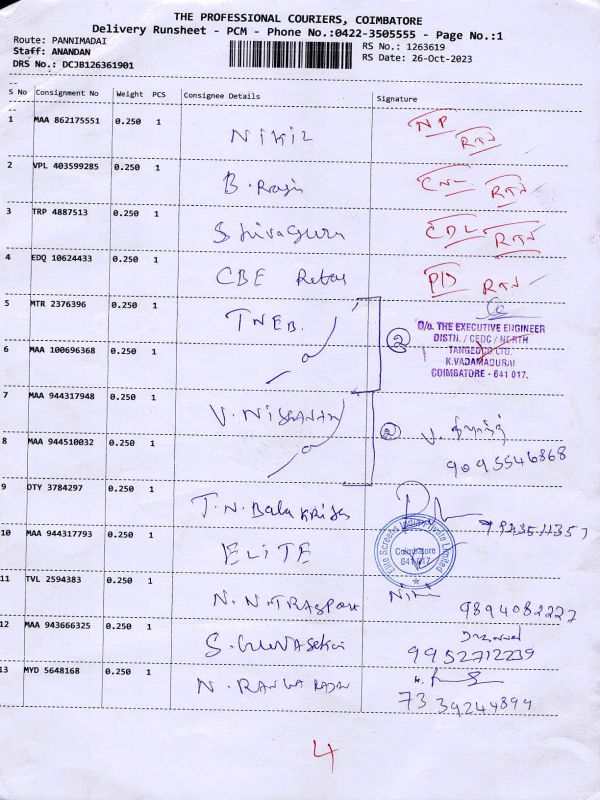 THE PROFESSIONAL COURIERS, COIMBATORE
Delivery Runsheet - PCM - Phone No.:0422-3505555 - Page No.:1
Route: PANNIMADAI
Staff: ANANDAN
DRS No.: DCJB126361901
RS No.: 1263619
RS Date: 26-Oct-2023
S No Consignment No Weight PCS Consignee Details Signature
1 MAA 862175551 0.250 1 Nikil NP RTN
2 VPL 403599285 0.250 1 B. Raji RTN
3 TRP 4887513 0.250 1 Shivaguru CDL RTN
4 EDQ 10624433 0.250 1 CBE RTN
5 MTR 2376396 0.250 1 TNEB.
2
O/o. THE EXECUTIVE ENGINEER
DISTN. / CEDC / NORTH
TANGEDCO LTD.
K.VADAMADURAI
COIMBATORE - 641 017.
6 MAA 100696368 0.250 1
7 MAA 944317948 0.250 1 V.
2
8 MAA 944510032 0.250 1 9095546868
9 DTY 3784297 0.250 1 T.N. Bala
10 MAA 944317793 0.250 1 ELITE
Elite Screens India Private Limited
Coimbatore
641 017
11 TVL 2594383 0.250 1 N.N. 9894082227
12 MAA 943666325 0.250 1 S. 9952712239
13 MYD 5648168 0.250 1 N. 7339244894
4